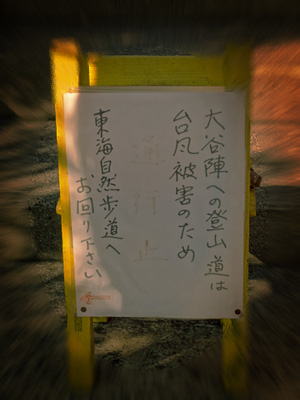 大谷陣への登山道は
台風被害のため
通行止
東海自然歩道へ
お回り下さい